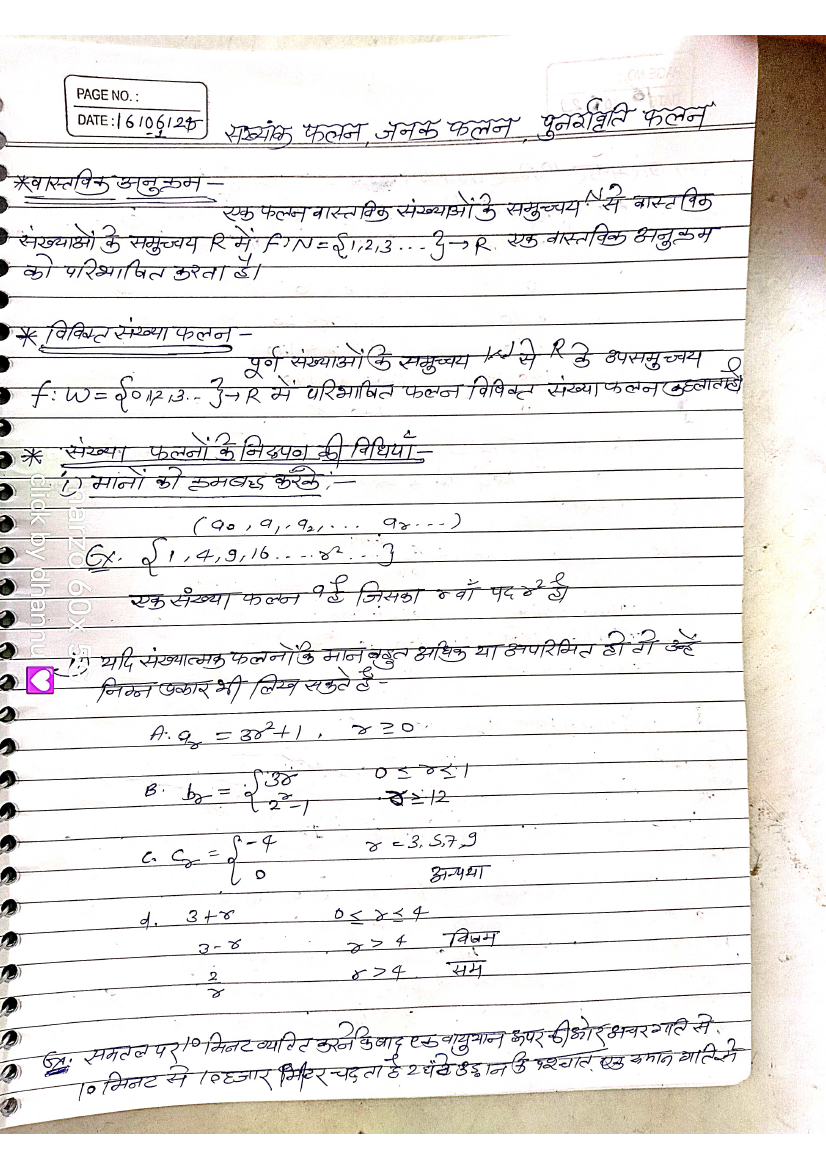 PAGE NO.:
DATE: 16/06/25
संख्यांक फलन, जनक फलन, पुनरावृति फलन
*वास्तविक अनुक्रम -
एक फलन वास्तविक संख्याओं के समुच्चय N से वास्तविक
संख्याओं के समुच्चय R में f: N = {1,2,3 ... } → R. एक वास्तविक अनुक्रम
को परिभाषित करता है।
* विविक्त संख्या फलन -
पूर्ण संख्याओं के समुच्चय से R के उपसमुच्चय
f: W = {0,1,2,3.. } → R में परिभाषित फलन विविक्त संख्या फलन कहलाता है
* संख्या फलनों के निरूपण की विधियाँ -
i) मानों को क्रमबद्ध करके :-
(a₀, a₁, a₂, ... aᵣ ...)
Ex. {1, 4, 9, 16 .... r² ... }
एक संख्या फलन a है जिसका r वाँ पद r² है।
ii) यदि संख्यात्मक फलनों के मान बहुत अधिक या अपरिमित हो तो उन्हें
निम्न प्रकार भी लिख सकते है -
A. aᵣ = 3r²+1, r ≥ 0.
B. bᵣ = { 3r 0 ≤ r ≤ 1
2ʳ-1 r ≥ 12
C. Cᵣ = { -4 r = 3,5,7,9
0 अन्यथा
d. 3+r 0 ≤ r ≤ 4
3-r r > 4 विषम
2/r r > 4 सम
Ex: समतल पर 10 मिनट व्यतित करने के बाद एक वायुयान ऊपर की ओर अचर गति से.
10 मिनट से 10 हजार मिटर चढ़ता है 2 घंटे उड़ान के पश्चात. एक समान गति से
click by dhannu
narzo 60x 5